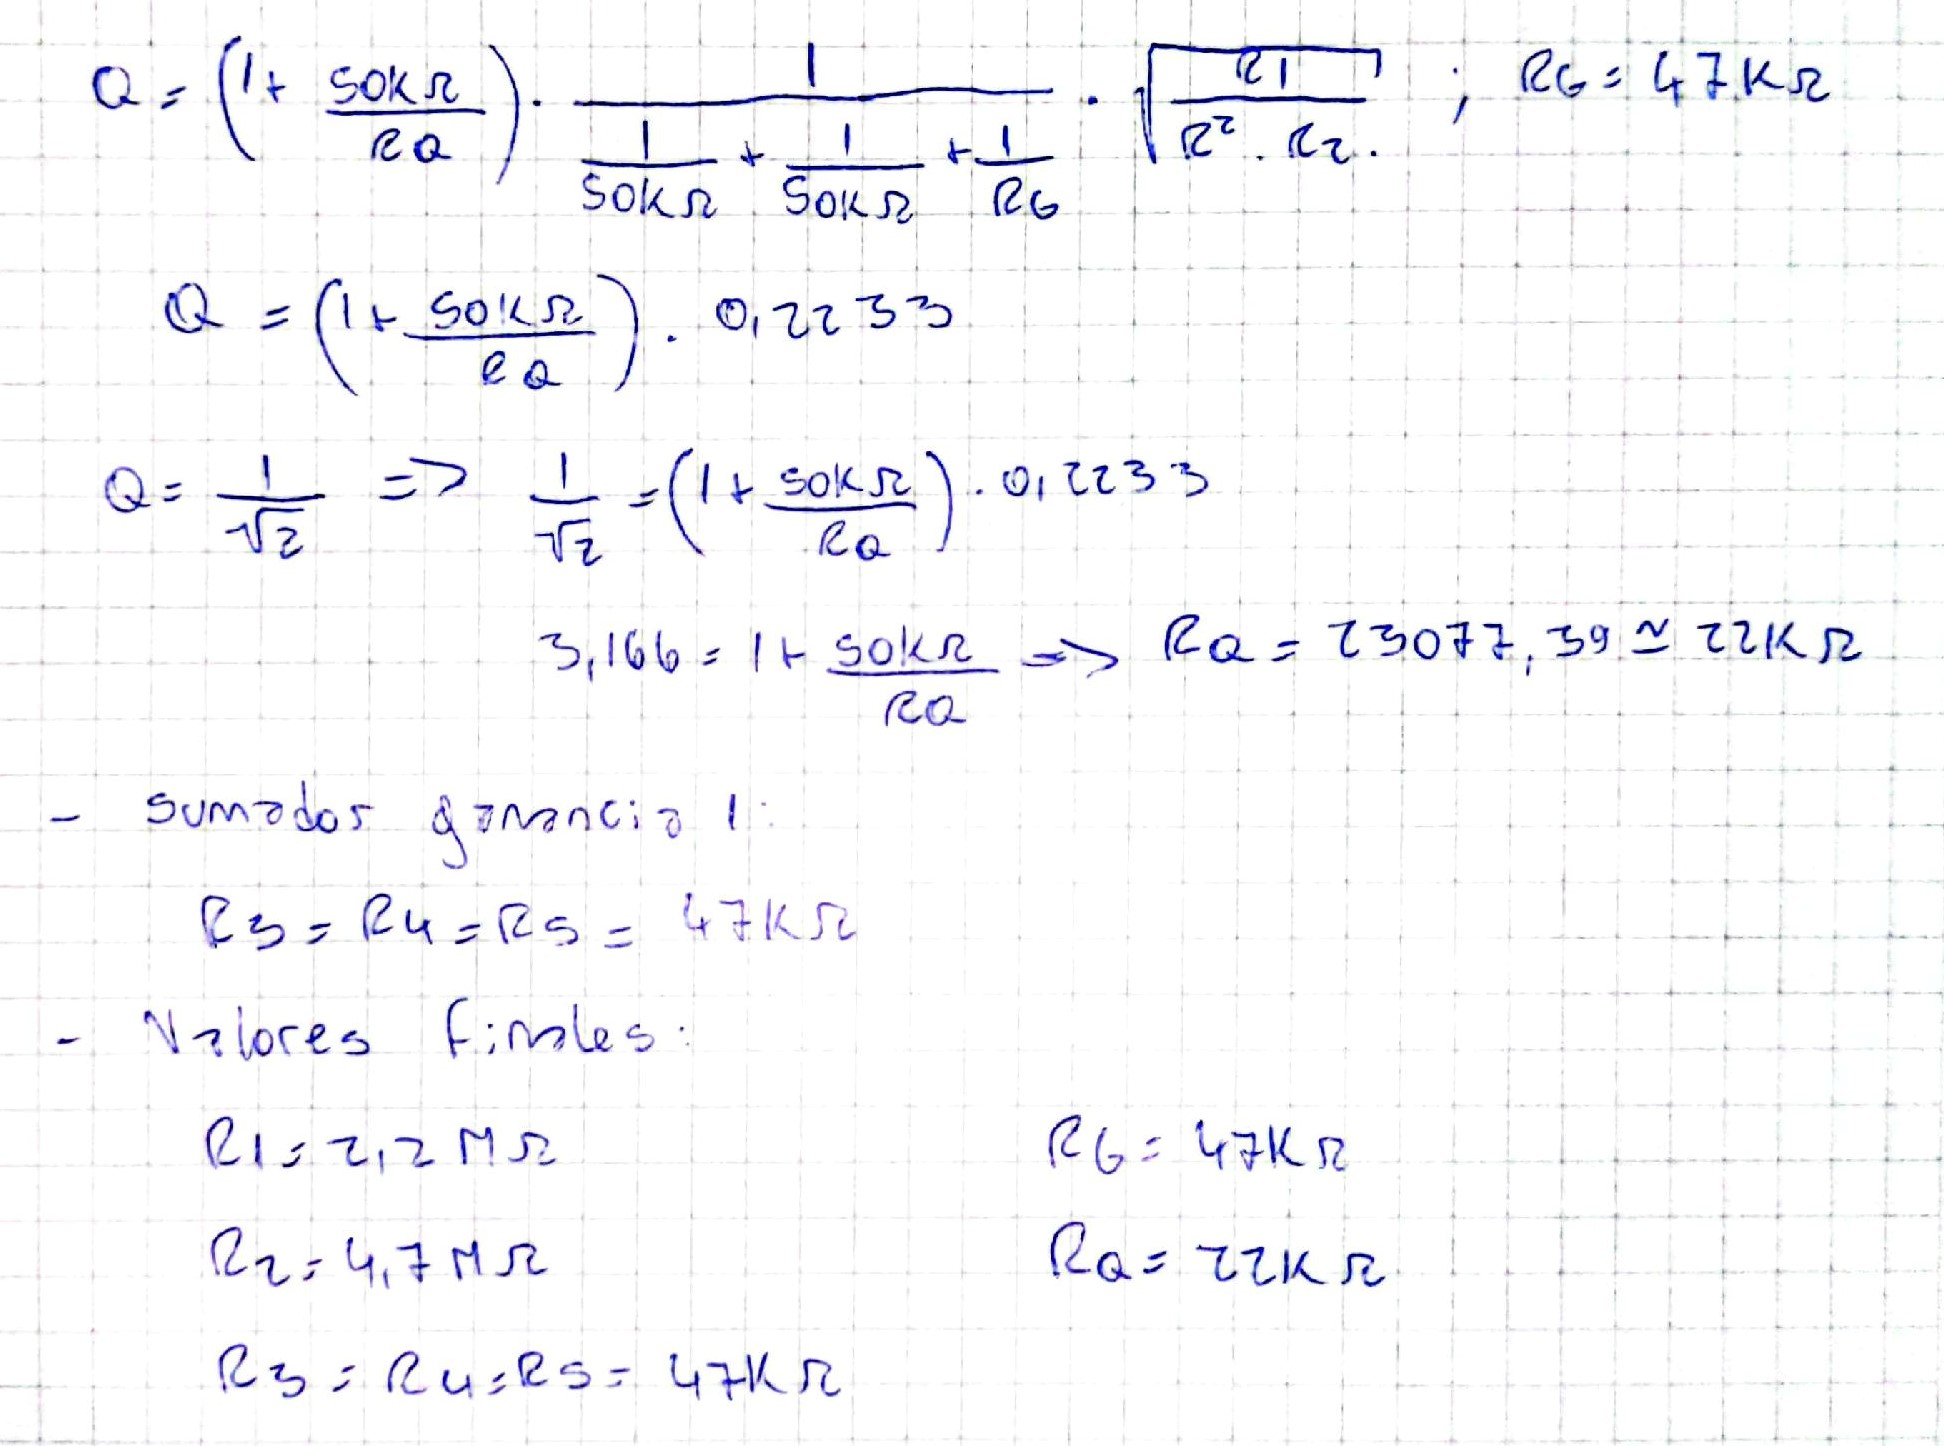 Q = (1 + 50KΩ / RQ) · 1 / (1/50KΩ + 1/50KΩ + 1/RG) · √(R1 / (R² · R2)) ; RG = 47KΩ
Q = (1 + 50KΩ / RQ) · 0,2233
Q = 1/√2 => 1/√2 = (1 + 50KΩ / RQ) · 0,2233
3,166 = 1 + 50KΩ / RQ => RQ = 23077,39 ≃ 22KΩ
- Sumador ganancia 1:
R3 = R4 = R5 = 47KΩ
- Valores finales:
R1 = 2,2 MΩ RG = 47KΩ
R2 = 4,7 MΩ RQ = 22KΩ
R3 = R4 = R5 = 47KΩ